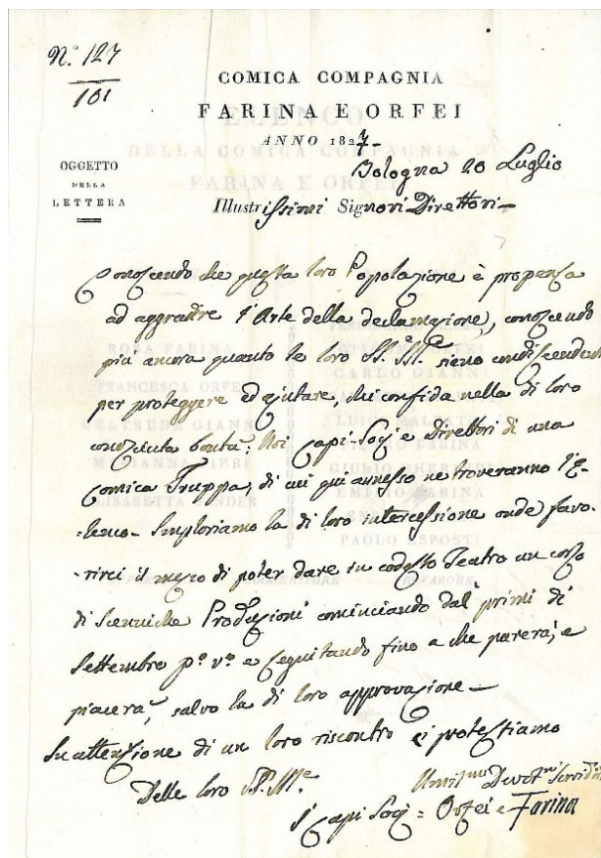 N.° 127
101
COMICA COMPAGNIA
FARINA E ORFEI
ANNO 1827.
Bologna 20 Luglio
OGGETTO
DELLA
LETTERA
Illustrissimi Signori Direttori
Conoscendo che questa loro Popolazione è propensa
ad aggradire l'Arte della declamazione, conoscendo
più ancora quanto le loro SS. Ill.e sieno condiscendenti
per proteggere ed ajutare, chi confida nella di loro
conosciuta bontà; Noi Capi-Socj e Direttori di una
Comica Truppa, di cui qui annesso ne troveranno l'E-
-lenco- Imploriamo la di loro intercessione onde favo-
-rirci il mezzo di poter dare in codesto Teatro un corso
di Sceniche Produzioni cominciando dai primi di
Settembre p.° v.° e seguitando fino a che parerà, e
piacerà, salvo la di loro approvazione
In attenzione di un loro riscontro ci protestiamo
Delle loro SS. Ill.e
Umil.mi Devot.mi Servidori
I Capi Socj = Orfei e Farina